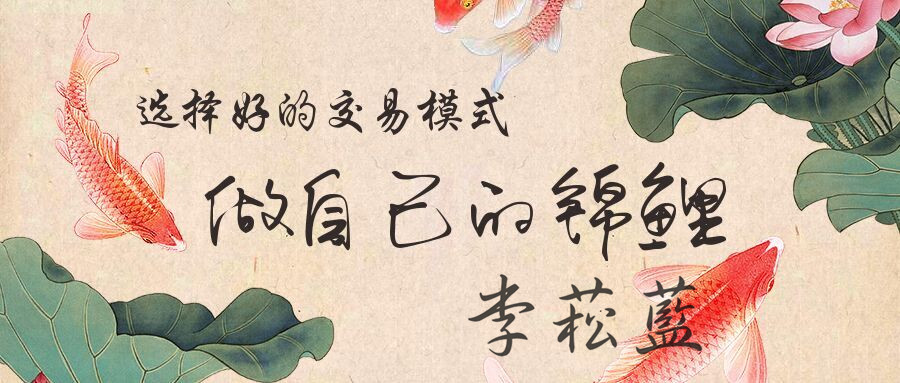 选择好的交易模式
做自己的锦鲤
李菘藍